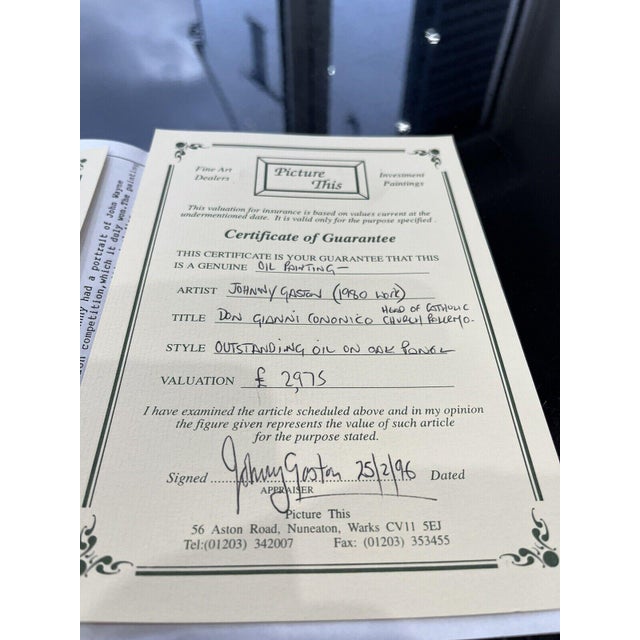 ny had a portrait of John Wayne
competition, which it duly won. The painting
Fine Art
Dealers
Picture
This
Investment
Paintings
This valuation for insurance is based on values current at the
undermentioned date. It is valid only for the purpose specified.
Certificate of Guarantee
THIS CERTIFICATE IS YOUR GUARANTEE THAT THIS
IS A GENUINE OIL PAINTING—
ARTIST JOHNNY GASTON (1980 WORK)
TITLE DON GIANNI CONONICO HEAD OF CATHOLIC
CHURCH PALERMO.
STYLE OUTSTANDING OIL ON OAK PANEL
VALUATION £ 2,975
I have examined the article scheduled above and in my opinion
the figure given represents the value of such article
for the purpose stated.
Signed Johnny Gaston 25/2/96 Dated
APPRAISER
Picture This
56 Aston Road, Nuneaton, Warks CV11 5EJ
Tel:(01203) 342007 Fax: (01203) 353455